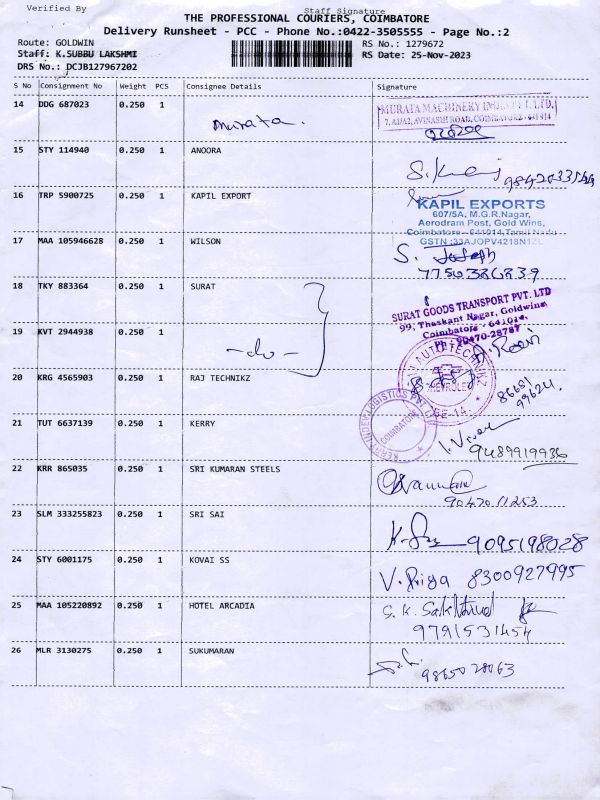 Verified By Staff Signature
THE PROFESSIONAL COURIERS, COIMBATORE
Delivery Runsheet - PCC - Phone No.:0422-3505555 - Page No.:2
Route: GOLDWIN
Staff: K.SUBBU LAKSHMI
DRS No.: DCJB127967202
RS No.: 1279672
RS Date: 25-Nov-2023
S No Consignment No Weight PCS Consignee Details Signature
14 DDG 687023 0.250 1 Murata.
MURATA MACHINERY INDIA PVT. LTD.
7, AVINASHI ROAD, COIMBATORE - 641 014
15 STY 114940 0.250 1 ANOORA
16 TRP 5900725 0.250 1 KAPIL EXPORT
KAPIL EXPORTS
607/5A, M.G.R.Nagar,
Aerodram Post, Gold Wins,
Coimbatore - 641014, Tamil Nadu
GSTN :33AJOPV4218N1ZL
17 MAA 105946628 0.250 1 WILSON
S. Joseph
18 TKY 883364 0.250 1 SURAT
SURAT GOODS TRANSPORT PVT. LTD
99, Theekant Nagar, Goldwins
Coimbatore - 641014.
19 KVT 2944938 0.250 1 -do-
20 KRG 4565903 0.250 1 RAJ TECHNIKZ
86681
99624.
21 TUT 6637139 0.250 1 KERRY
COIMBATORE
9489919936
22 KRR 865035 0.250 1 SRI KUMARAN STEELS
9047011253
23 SLM 333255823 0.250 1 SRI SAI
9095198028
24 STY 6001175 0.250 1 KOVAI SS
V. Priya 8300927995
25 MAA 105220892 0.250 1 HOTEL ARCADIA
9791531454
26 MLR 3130275 0.250 1 SUKUMARAN
9865028063